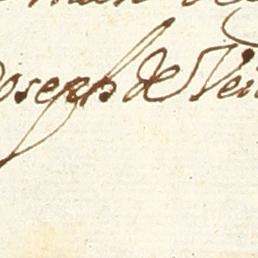 Joseph de Vei